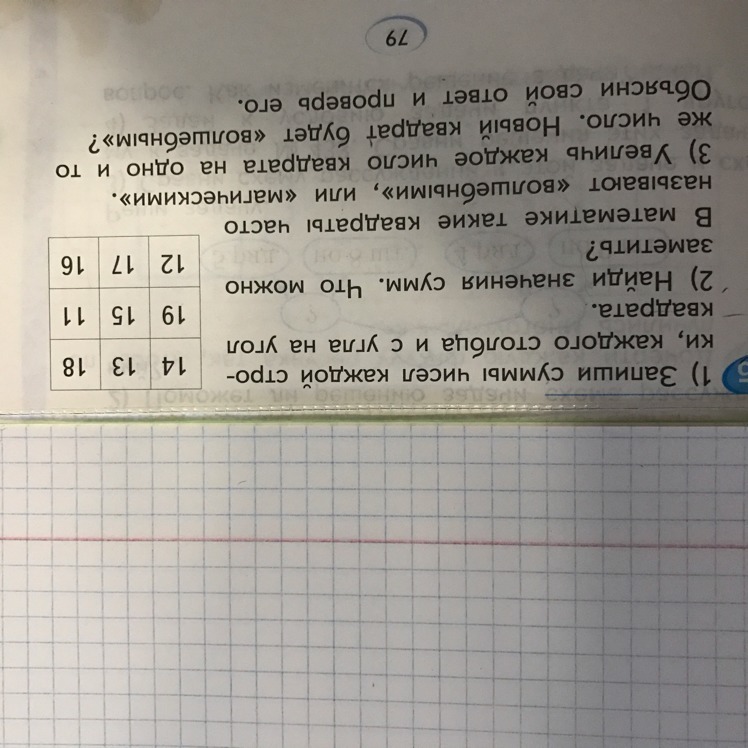 5 1) Запиши суммы чисел каждой стро-
ки, каждого столбца и с угла на угол
квадрата.
2) Найди значения сумм. Что можно
заметить?
В математике такие квадраты часто
называют «волшебными», или «магическими».
14 13 18
19 15 11
12 17 16
3) Увеличь каждое число квадрата на одно и то
же число. Новый квадрат будет «волшебным»?
Объясни свой ответ и проверь его.
79